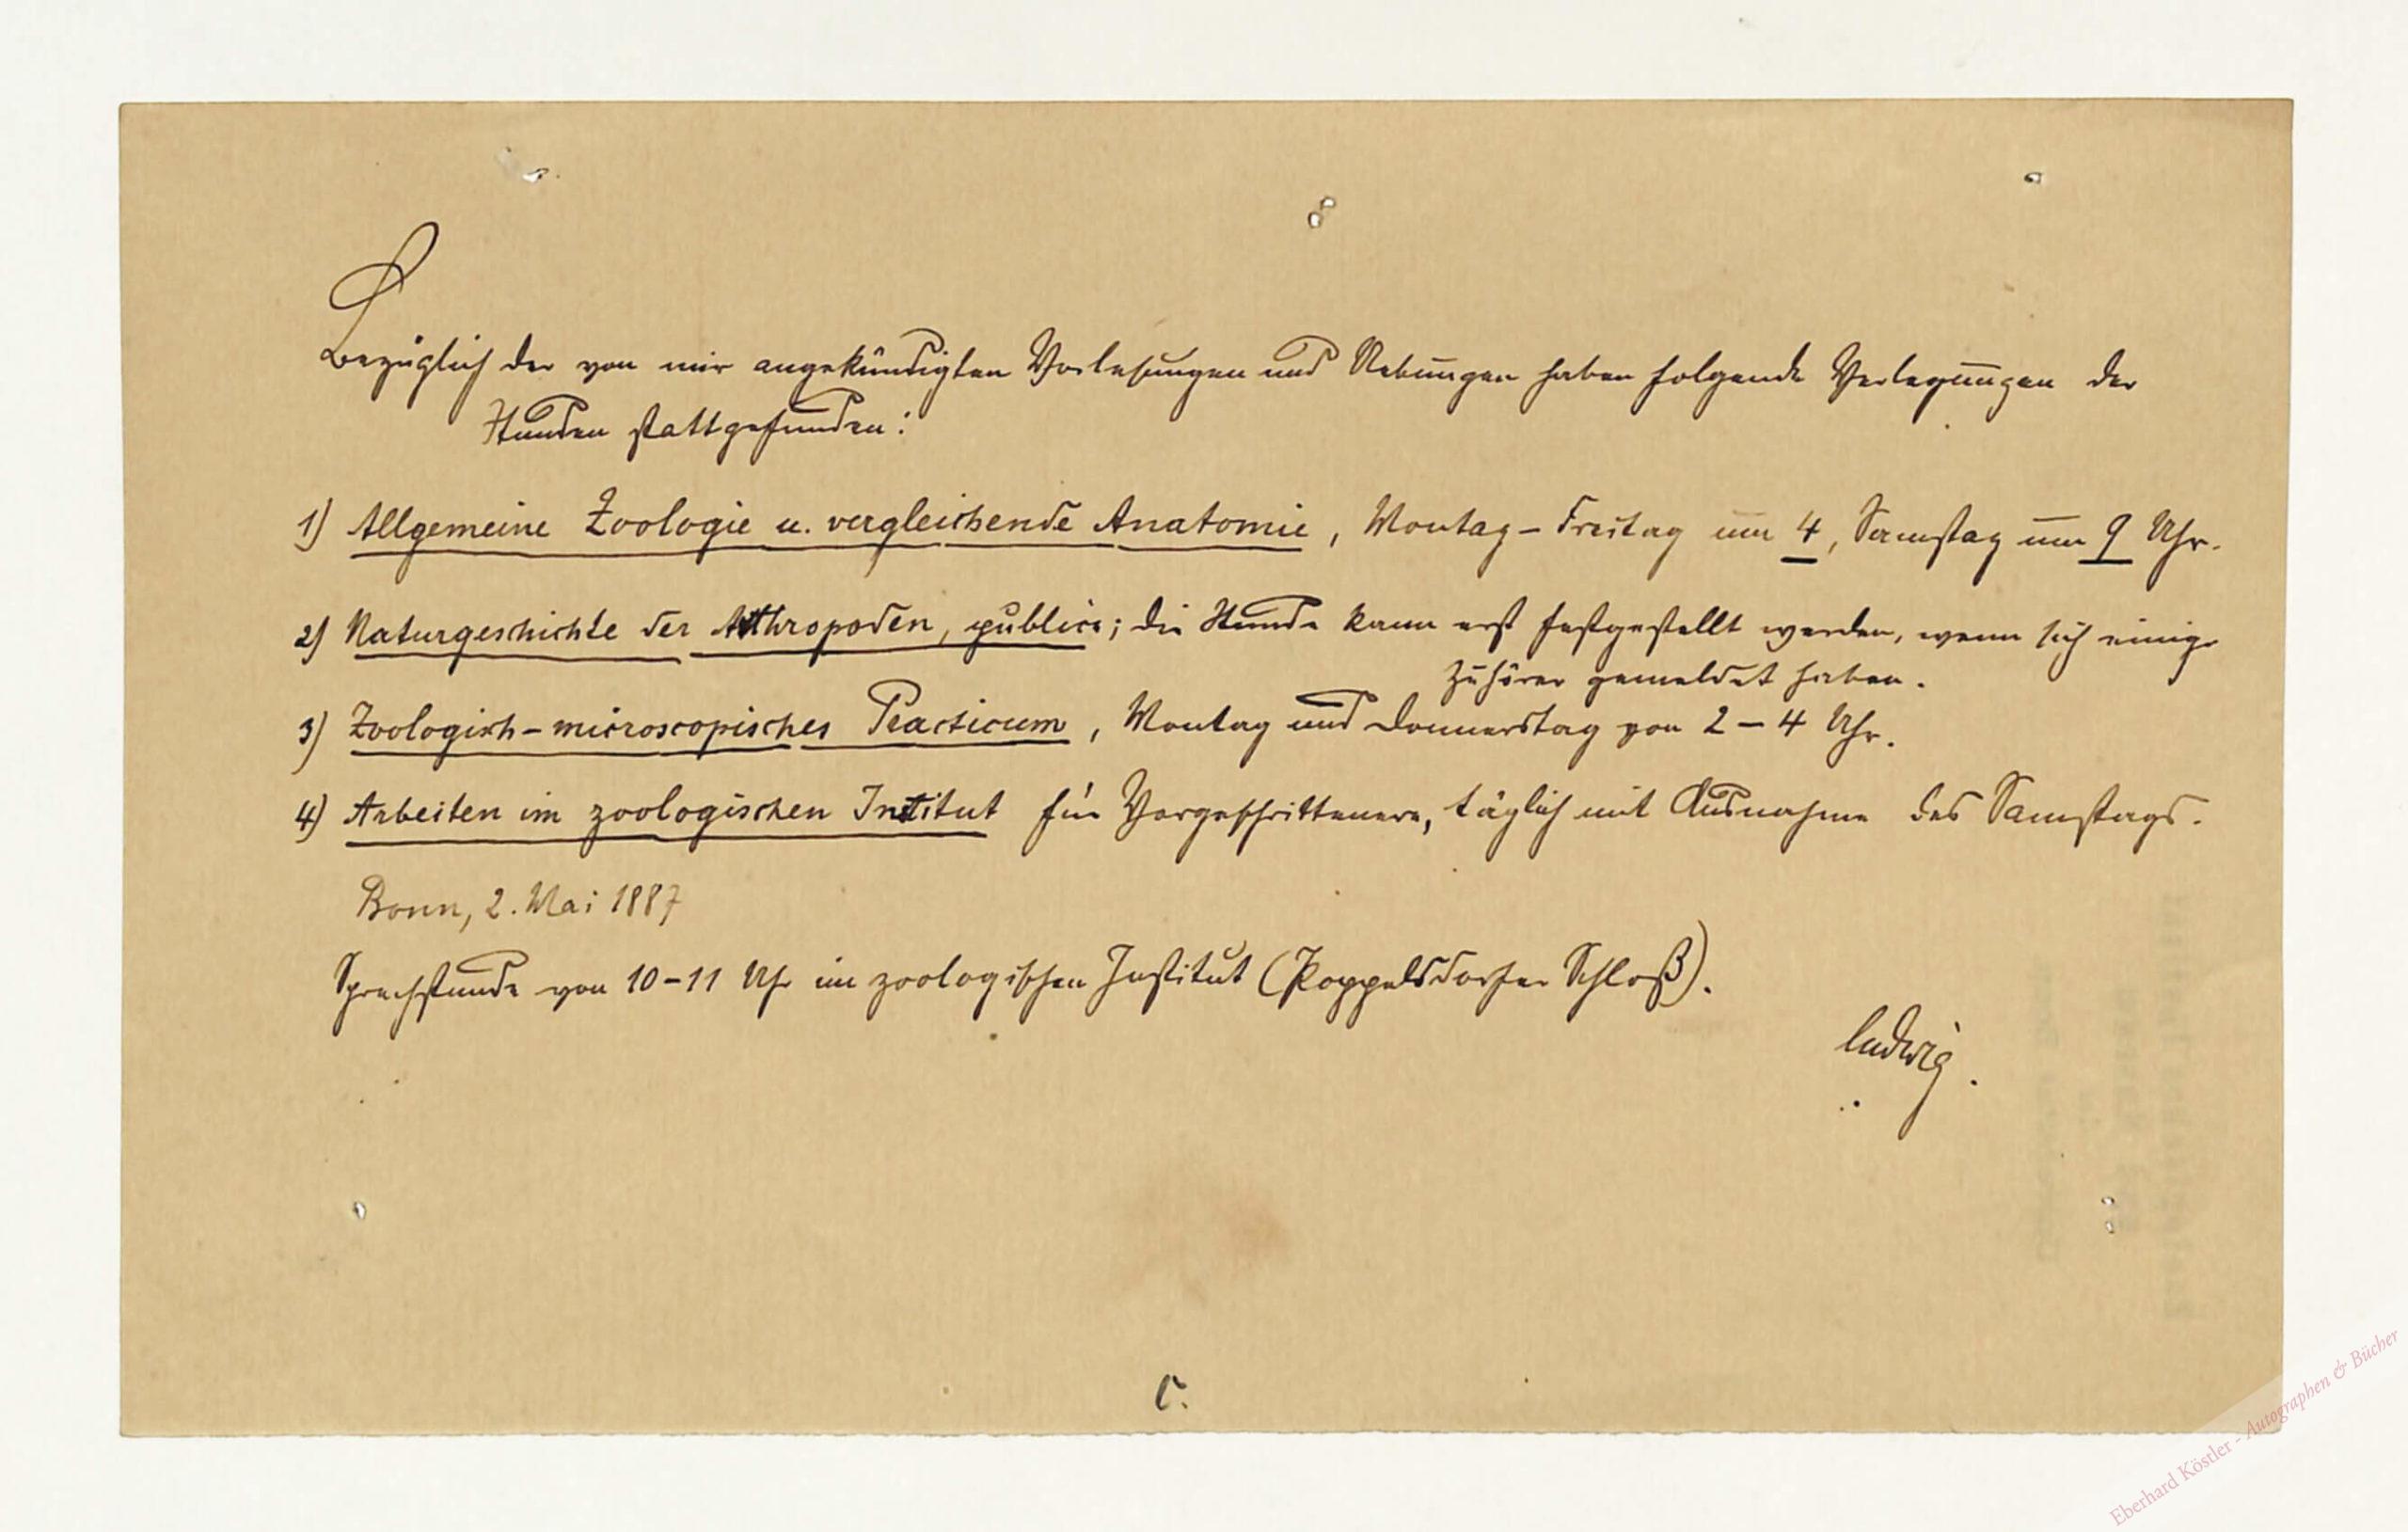 Bezüglich der von mir angekündigten Vorlesungen und Uebungen haben folgende Verlegungen der
Stunden stattgefunden:
1) Allgemeine Zoologie u. vergleichende Anatomie, Montag – Freitag um 4, Samstag um 9 Uhr.
2) Naturgeschichte der Arthropoden, publice; die Stunde kann erst festgestellt werden, wenn sich einige
Zuhörer gemeldet haben.
3) Zoologisch-microscopisches Practicum, Montag und Donnerstag von 2–4 Uhr.
4) Arbeiten im zoologischen Institut für Vorgeschrittenere, täglich mit Ausnahme des Samstags.
Bonn, 2. Mai 1887
Sprechstunde von 10–11 Uhr im zoologischen Institut (Poppelsdorfer Schloß).
Ludwig.
C.
Eberhard Köstler - Autographen & Bücher